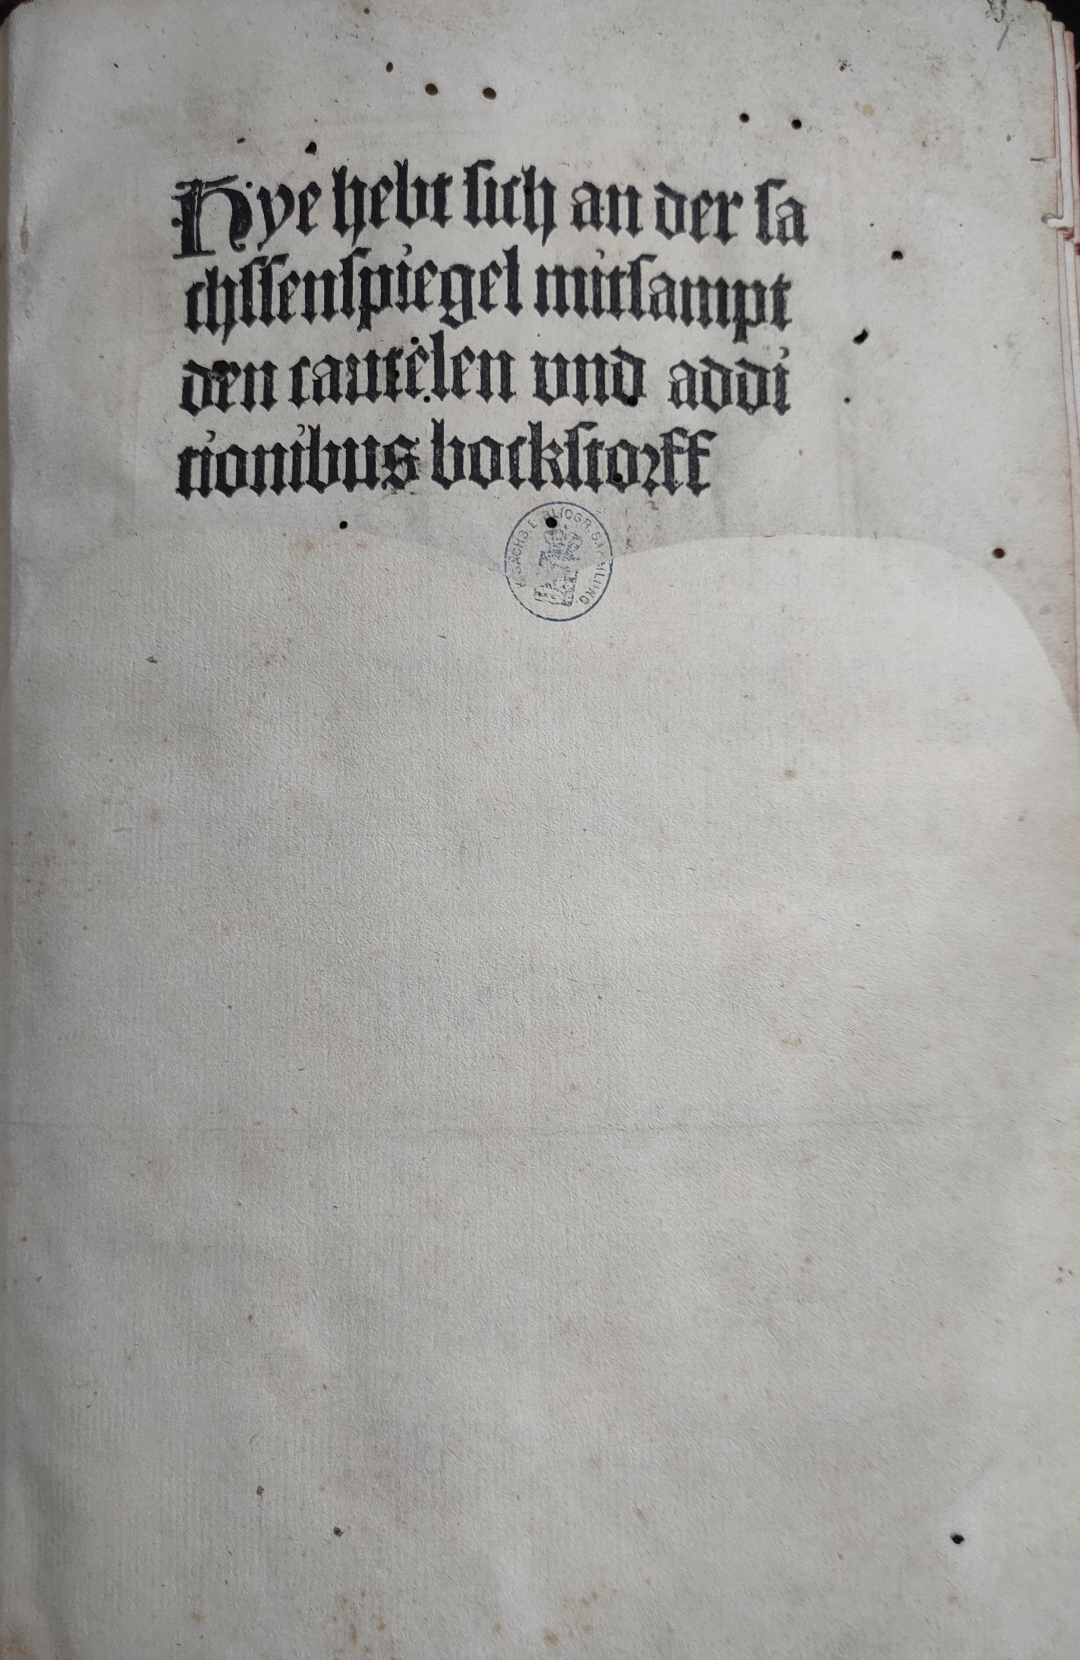 Hye hebt sich an der sa
chssenspiegel mitsampt
den cautelen vnd addi
cionibus bockstorff
K. SÄCHS. BIBLIOGR. SAMMLUNG